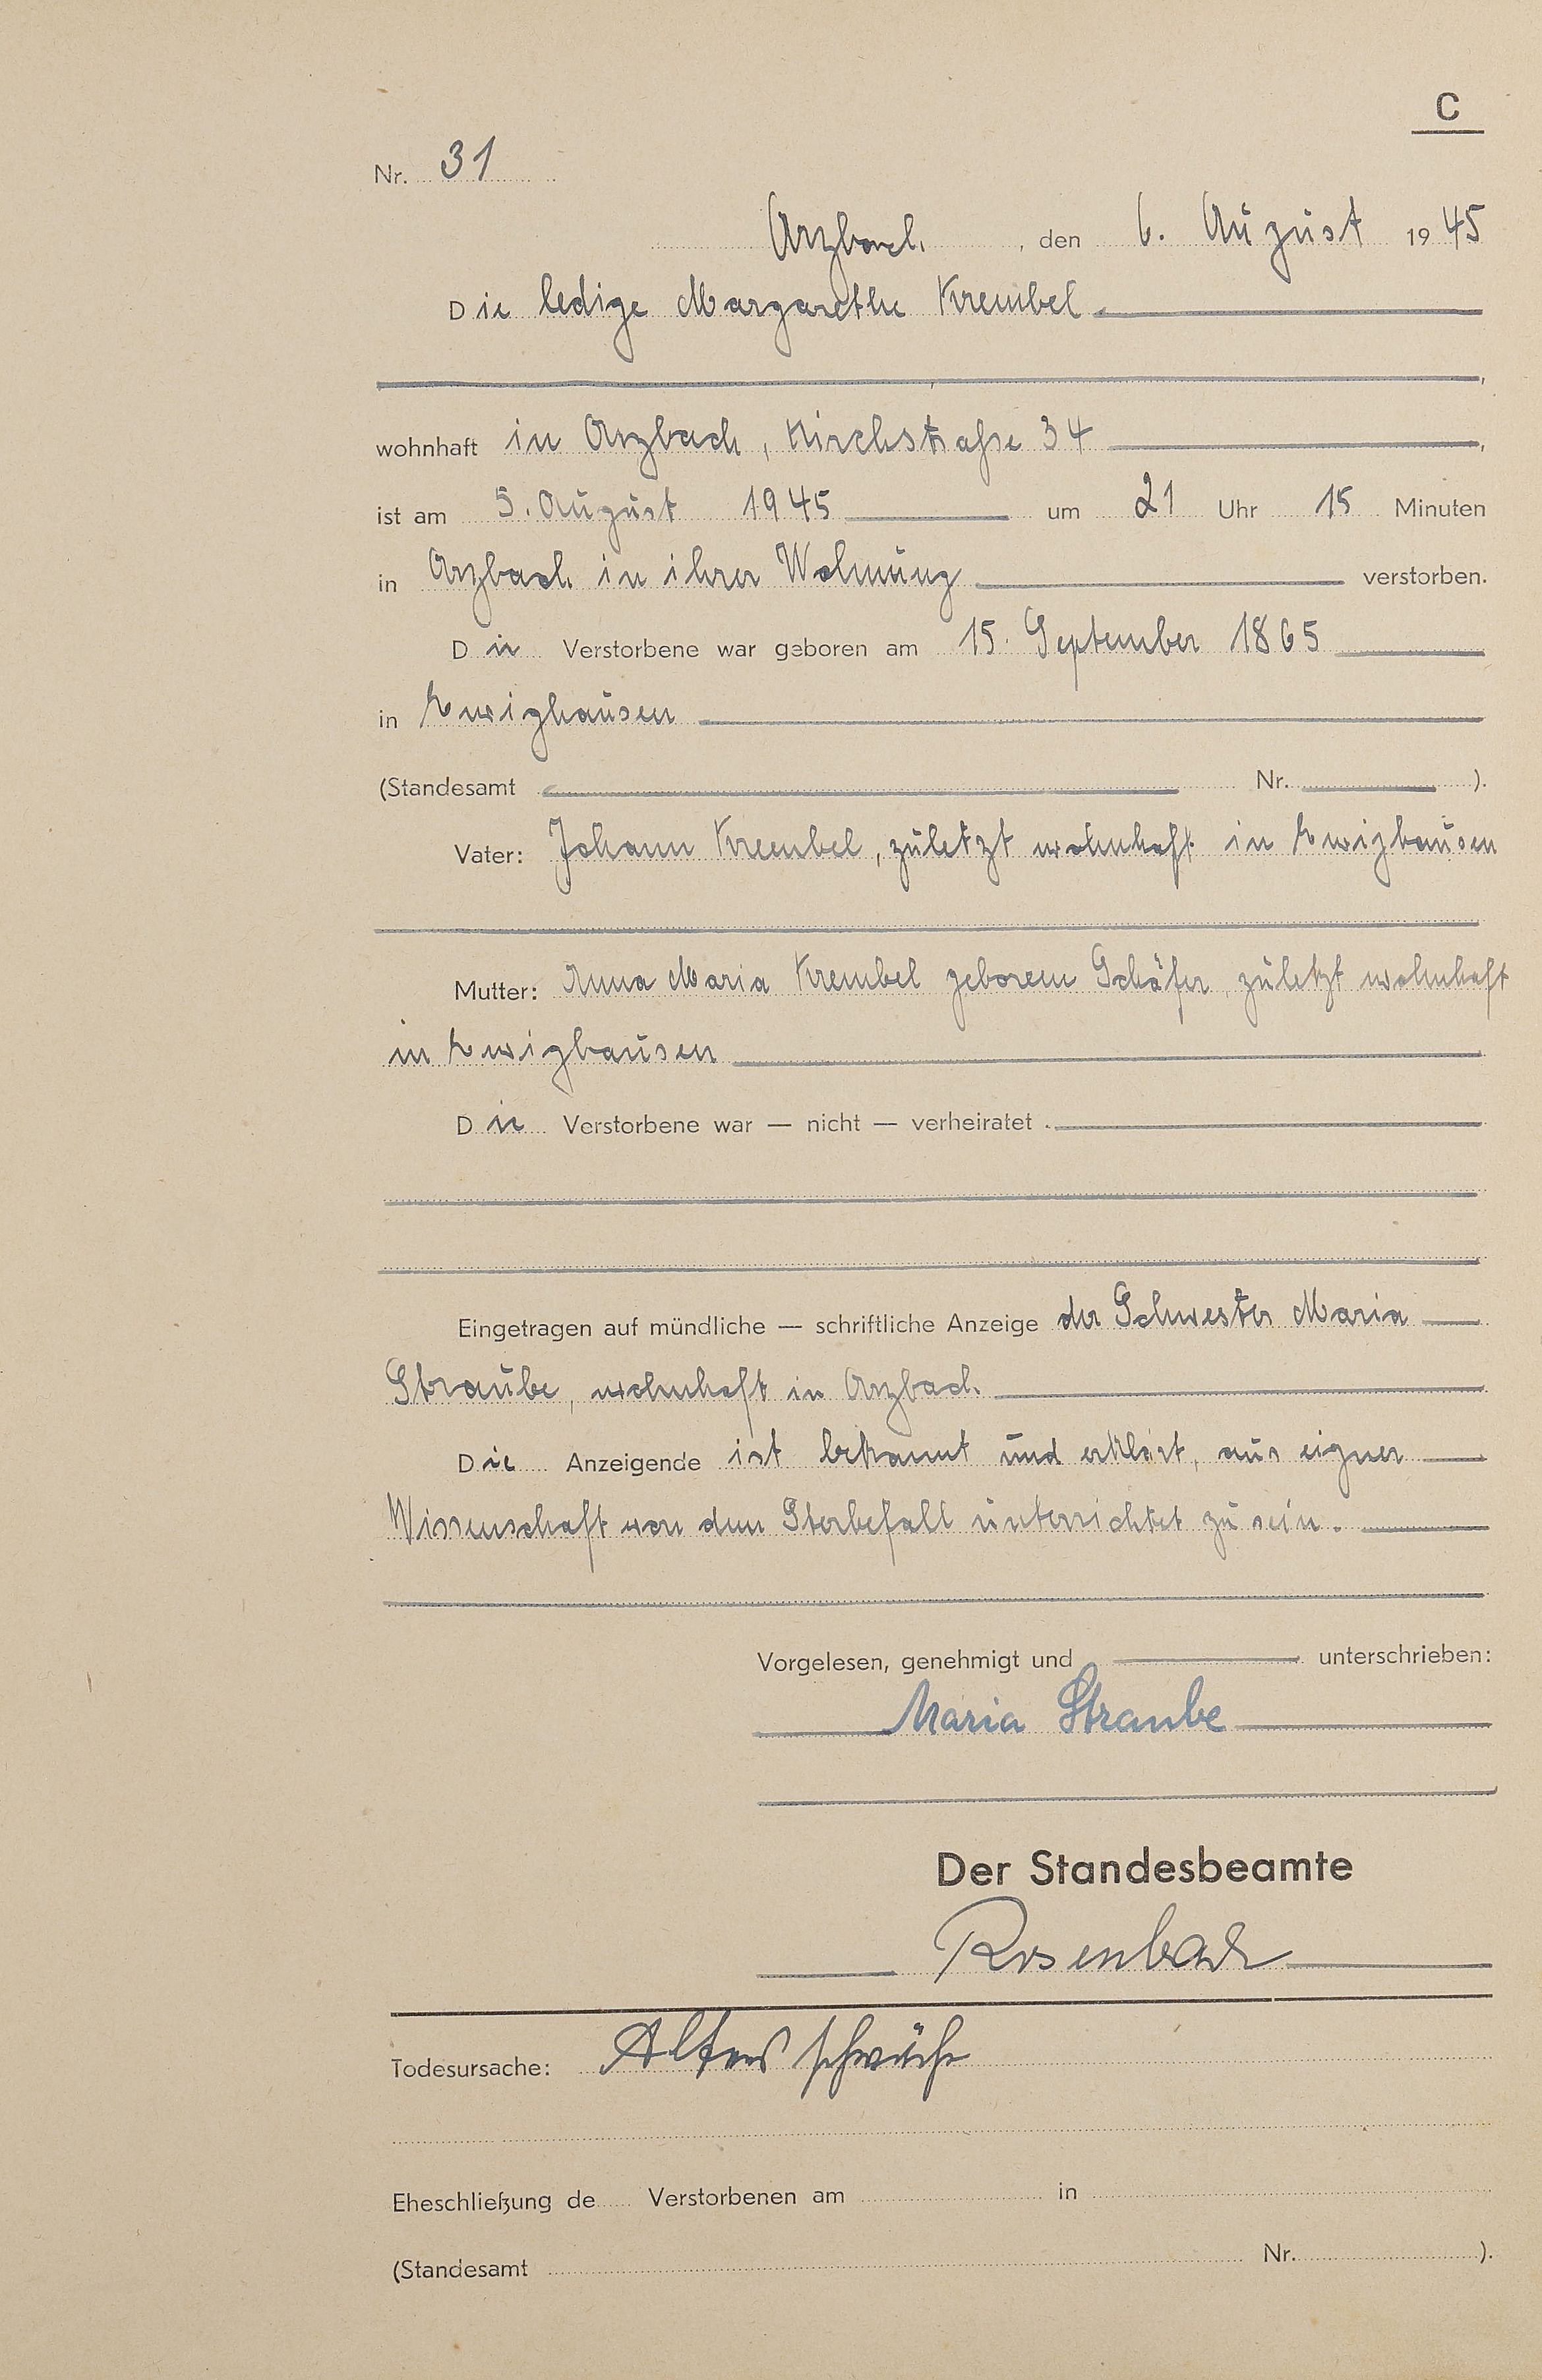 C
Nr. 31
Arzbach, den 6. August 1945
Die ledige Margarethe Krembel
wohnhaft in Arzbach, Kirchstraße 34,
ist am 5. August 1945 um 21 Uhr 15 Minuten
in Arzbach in ihrer Wohnung verstorben.
Die Verstorbene war geboren am 15. September 1865
in
(Standesamt Nr. ).
Vater: Johann Krembel, zuletzt wohnhaft in
Mutter: Anna Maria Krembel geborene Schäfer, zuletzt wohnhaft
in
Die Verstorbene war — nicht — verheiratet.
Eingetragen auf mündliche — schriftliche Anzeige der Schwester Maria
Straube, wohnhaft in Arzbach
Die Anzeigende ist bekannt und erklärt, aus eigner
Wissenschaft von dem Sterbefall unterrichtet zu sein.
Vorgelesen, genehmigt und unterschrieben:
Maria Straube
Der Standesbeamte
Rosenbach
Todesursache: Altersschwäche
Eheschließung de Verstorbenen am in
(Standesamt Nr. ).